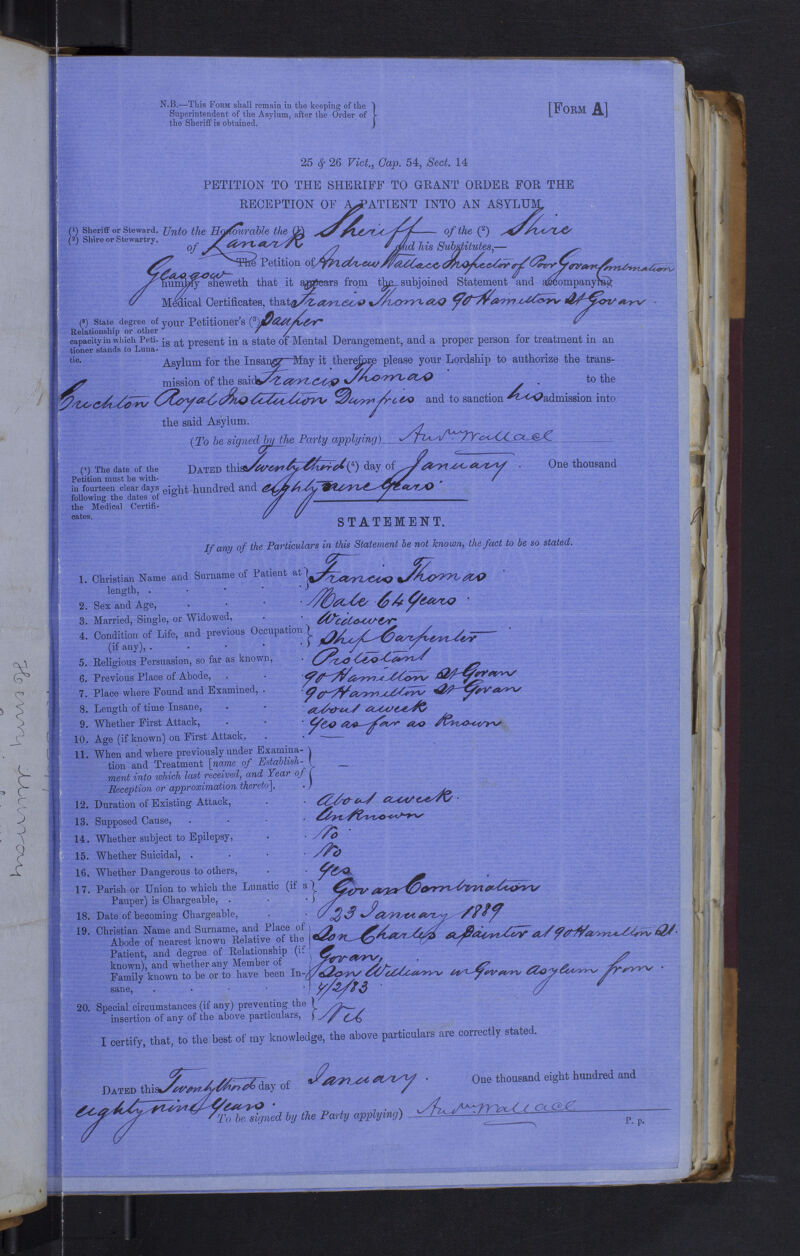 N.B.—This Form shall remain in the keeping of the
Superintendent of the Asylum, after the Order of
the Sheriff is obtained.
[Form A]
25 & 26 Vict., Cap. 54, Sect. 14
PETITION TO THE SHERIFF TO GRANT ORDER FOR THE
RECEPTION OF A PATIENT INTO AN ASYLUM.
(¹) Sheriff or Steward.
(²) Shire or Stewartry.
Unto the Honourable the (¹) Sheriff of the (²) Shire
of Lanark and his Substitutes,—
The Petition of Andrew Wallace Inspector of Poor Govan Combination
Glasgow
humbly sheweth that it appears from the subjoined Statement and accompanying
Medical Certificates, that Francis Thomas 90 Hamilton St Govan
(³) State degree of
Relationship or other
capacity in which Peti-
tioner stands to Luna-
tic.
your Petitioner's (³) Pauper
is at present in a state of Mental Derangement, and a proper person for treatment in an
Asylum for the Insane. May it therefore please your Lordship to authorize the trans-
mission of the said Francis Thomas to the
Crichton Royal Institution Dumfries and to sanction his admission into
the said Asylum.
(To be signed by the Party applying) Andw Wallace
(⁴) The date of the
Petition must be with-
in fourteen clear days
following the dates of
the Medical Certifi-
cates.
Dated this Twenty third (⁴) day of January. One thousand
eight hundred and eighty nine Years
STATEMENT.
If any of the Particulars in this Statement be not known, the fact to be so stated.
1. Christian Name and Surname of Patient at
length, . Francis Thomas
2. Sex and Age, Male 64 Years
3. Married, Single, or Widowed, Widower
4. Condition of Life, and previous Occupation
(if any), . Ship Carpenter
5. Religious Persuasion, so far as known, Protestant
6. Previous Place of Abode, . 90 Hamilton St Govan
7. Place where Found and Examined, . 90 Hamilton St Govan
8. Length of time Insane, about a week
9. Whether First Attack, Yes as far as Known
10. Age (if known) on First Attack, —
11. When and where previously under Examina-
tion and Treatment [name of Establish-
ment into which last received, and Year of
Reception or approximation thereto], —
12. Duration of Existing Attack, About a week
13. Supposed Cause, Unknown
14. Whether subject to Epilepsy, No
15. Whether Suicidal, . No
16. Whether Dangerous to others, Yes
17. Parish or Union to which the Lunatic (if a
Pauper) is Chargeable, . Govan Combination
18. Date of becoming Chargeable, 23 January 1889
19. Christian Name and Surname, and Place of
Abode of nearest known Relative of the
Patient, and degree of Relationship (if
known), and whether any Member of
Family known to be or to have been In-
sane,
Son Charles a Painter at 90 Hamilton St.
Govan,
Son William in Govan Asylum from
4/2/83
20. Special circumstances (if any) preventing the
insertion of any of the above particulars, Nil
I certify, that, to the best of my knowledge, the above particulars are correctly stated.
Dated this Twenty third day of January. One thousand eight hundred and
eighty nine Years.
To be signed by the Party applying) Andw. Wallace
P. p.
Henry